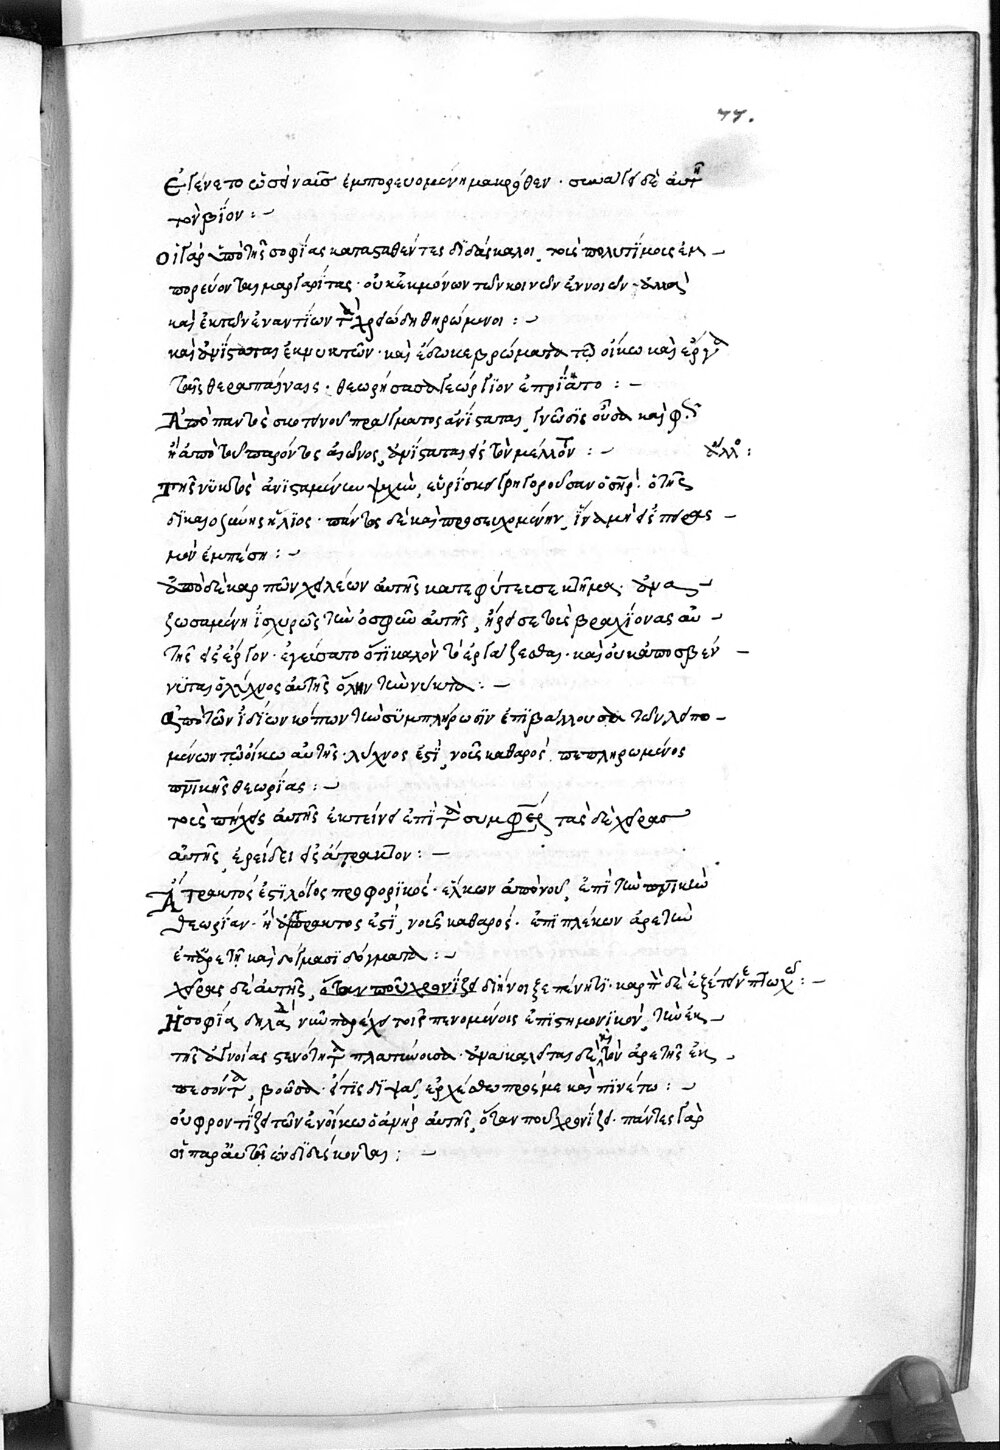 77.
Ἐγένετο ὡσεὶ ναῦς ἐμπορευομένη μακρόθεν · συνάγει δὲ αὐτῆ
τὸν βίον : ~
Οἱ γὰρ ὑπὸ τῆς σοφίας κατασταθέντες διδάσκαλοι, τοὺς πολυτίμους ἐμ –
πορεύονται μαργαρίτας · οὐκ ἐκ μόνων τῶν κοινῶν ἐννοιῶν · ἀλλὰ
καὶ ἐκ τῶν ἐναντίων τὰ θηρώμενοι : ~
καὶ ἀνίσταται ἐκ νυκτῶν · καὶ ἔδωκε βρώματα τῷ οἴκω καὶ ἔργα
ταῖς θεραπαίναις · θεωρήσασα γεώργιον ἐπρίατο : ~
Ἀπὸ παντὸς σκοτεινοῦ πράγματος ἀνίσταται, γνῶσις οὖσα καὶ φῶς
ἢ ἀπὸ τοῦ παρόντος αἰῶνος, ἀνίσταται εἰς τὸν μέλλοντα : ~ ἄλλο :
Τῆς νυκτὸς ἀνισταμένην ψυχὴν, εὑρίσκει γρηγοροῦσαν ὁ σπὴρ · ὁ τῆς
δικαιοσύνης ἥλιος · πάντως δὲ καὶ προσευχομένην, ἵνα μὴ εἰς πειρασ –
μὸν ἐμπέση : ~
Ἀπὸ δὲ καρπῶν χειλέων αὐτῆς κατεφύτευσε κτῆμα · ἀνα –
ζωσαμένη ἰσχυρῶς τὴν ὀσφῦν αὐτῆς, ἤρεισε τοὺς βραχίονας αὐ –
τῆς εἰς ἔργον · ἐγεύσατο ὅτι καλὸν τὸ ἐργάζεσθαι · καὶ οὐκ ἀποσβέν –
νυται ὁ λύχνος αὐτῆς ὅλην τὴν νύκτα : ~
Ἀπὸ τῶν ἰδίων κόπων τὴν συμπλήρωσιν ἐπιβάλλουσα τῶν λειπο –
μένων τῷ οἴκω αὐτῆς · λύχνος ἐστὶ, νοῦς καθαρὸς πεπληρωμένος
πνικῆς θεωρίας : ~
τοὺς πήχεις αὐτῆς ἐκτείνει ἐπὶ τὰ συμφέροντα τὰς δὲ χεῖρας
αὐτῆς, ἐρείδει εἰς ἄτρακτον : ~
Ἄτρακτός ἐστι λόγος προφορικὸς · ἕλκων ἀπὸ νοῦ, ἐπὶ τὴν πνικὴν
θεωρίαν · ἢ ἄτρακτος ἐστὶ, νοῦς καθαρὸς · ἐπιπλέκων ἀρετὴν
ἐπ' ἀρετῆ καὶ δόγμασι δόγματα : ~
χεῖρας δὲ αὐτῆς, ὅταν που χρονίζει διήνοιξε πένητι · καρπὸν δὲ ἐξέτεινε πτωχῶ : ~
Ἡ σοφία δηλαδὴ νῦν παρέχει τοῖς πενομένοις ἐπιστημονικὸν, τὴν ἐκ –
τῆς ἀγνοίας στενότητα πλατύνουσα · ἀνακαλεῖται δὲ καὶ τὸν ἀρετῆς ἐκ –
πεσόντα, βοῶσα · εἴ τις διψᾶ, ἐρχέσθω πρός με καὶ πινέτω : ~
οὐ φροντίζει τῶν ἐν οἴκω ὁ ἀνὴρ αὐτῆς, ὅταν που χρονίζει · πάντες γὰρ
οἱ παρ' αὐτῆς ἐνδιδύσκονται : ~